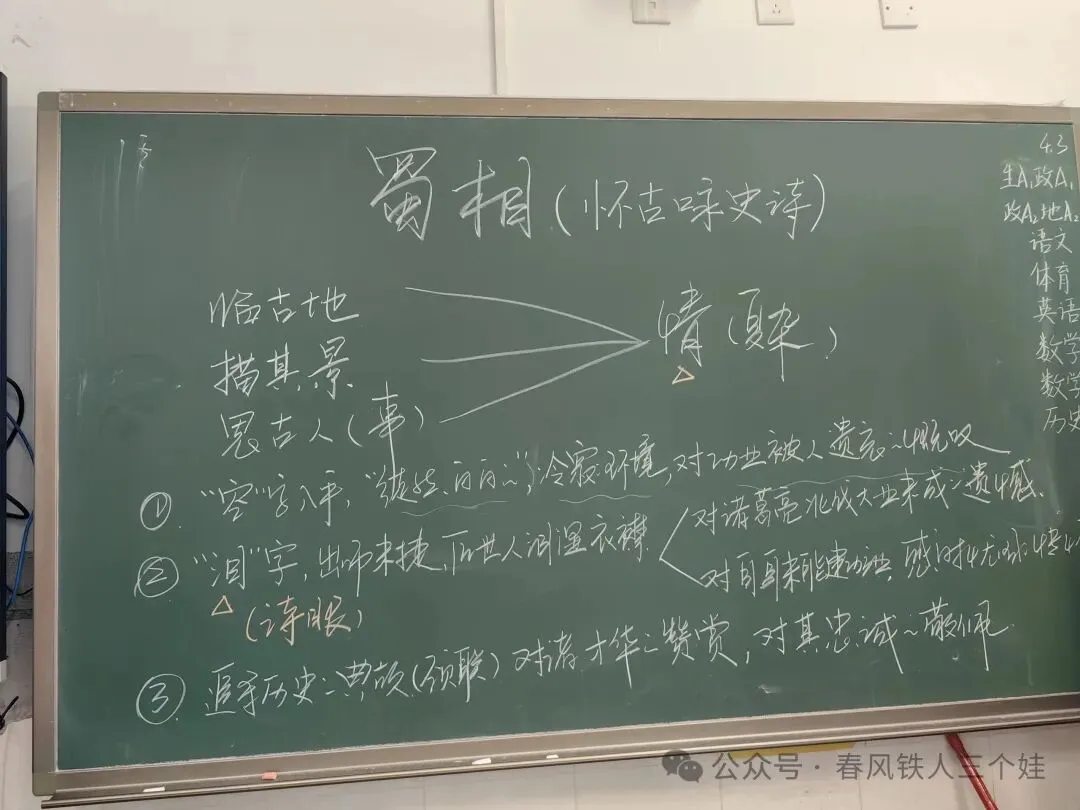 蜀相(怀古咏史诗)
临古地
描其景
思古人(事)
情(复杂)
①. "空"字入手,"                                                                    冷寂环境,对功业被人遗忘~慨叹
②"泪"字,出师未捷,后世人泪湿衣襟
对诸葛亮北伐大业未成~遗憾.
对自身未能建功业,感时忧
(诗眼)
③. 追乎历史:典故(颔联)对诸才华~赞赏,对其忠诚~敬佩.
4.3
生A₁政A₁
政A₂地A₂
语文
体育
英语
数学
数学
历史
公众号·春风铁人三个娃